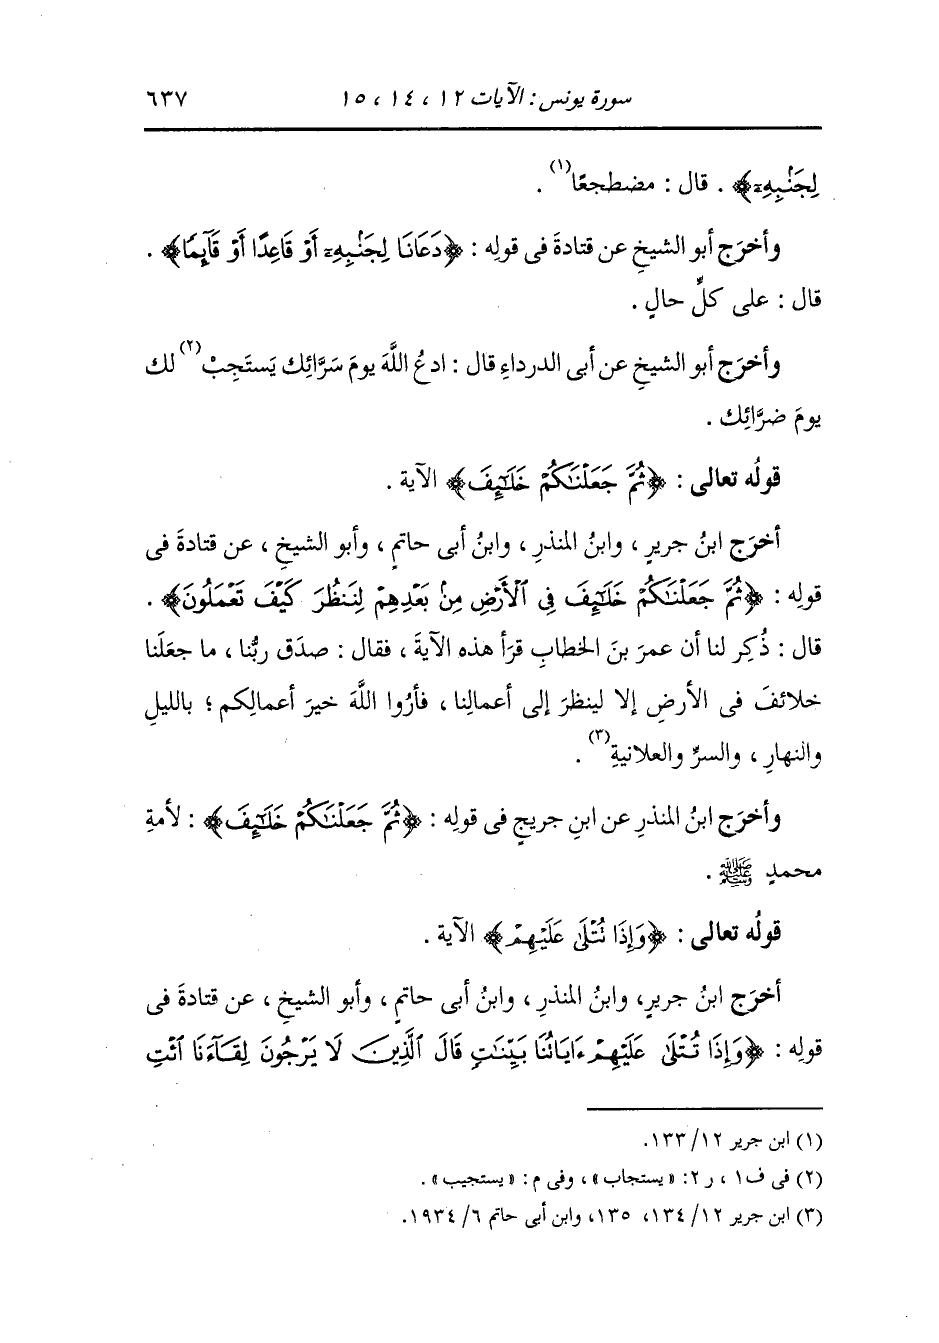 سورة يونس : الآيات ١٢ ، ١٤ ، ١٥ ٦٣٧
لِجَنْبِهِۦٓ﴾ . قال : مضطجعًا(١) .
وأخرَج أبو الشيخِ عن قتادةَ فى قولِه : ﴿دَعَانَا لِجَنۢبِهِۦٓ أَوۡ قَاعِدًا أَوۡ قَآئِمًا﴾ .
قال : على كلِّ حالٍ .
وأخرَج أبو الشيخِ عن أبى الدرداءِ قال : ادعُ اللَّهَ يومَ سَرَّائِك يَستَجِبْ(٢) لك
يومَ ضرَّائِك .
قولُه تعالى : ﴿ثُمَّ جَعَلۡنَٰكُمۡ خَلَٰٓئِفَ﴾ الآية .
أخرَج ابنُ جريرٍ ، وابنُ المنذرِ ، وابنُ أبى حاتمٍ ، وأبو الشيخِ ، عن قتادةَ فى
قولِه : ﴿ثُمَّ جَعَلۡنَٰكُمۡ خَلَٰٓئِفَ فِي ٱلۡأَرۡضِ مِنۢ بَعۡدِهِمۡ لِنَنظُرَ كَيۡفَ تَعۡمَلُونَ﴾ .
قال : ذُكِر لنا أن عمرَ بنَ الخطابِ قرَأ هذه الآيةَ ، فقال : صدَق ربُّنا ، ما جعَلَنا
خلائفَ فى الأرضِ إلا لينظرَ إلى أعمالِنا ، فأرُوا اللَّهَ خيرَ أعمالِكم ؛ بالليلِ
والنهارِ ، والسرِّ والعلانيةِ(٣) .
وأخرَج ابنُ المنذرِ عن ابنِ جريجٍ فى قولِه : ﴿ثُمَّ جَعَلۡنَٰكُمۡ خَلَٰٓئِفَ﴾ : لأمةِ
محمدٍ ﷺ .
قولُه تعالى : ﴿وَإِذَا تُتۡلَىٰ عَلَيۡهِمۡ﴾ الآية .
أخرَج ابنُ جريرٍ، وابنُ المنذرِ ، وابنُ أبى حاتمٍ ، وأبو الشيخِ ، عن قتادةَ فى
قولِه : ﴿وَإِذَا تُتۡلَىٰ عَلَيۡهِمۡ ءَايَاتُنَا بَيِّنَٰتٖ قَالَ ٱلَّذِينَ لَا يَرۡجُونَ لِقَآءَنَا ٱئۡتِ
(١) ابن جرير ١٢/ ١٣٣.
(٢) فى ف١ ، ر ٢: «يستجاب» ، وفى م : «يستجيب» .
(٣) ابن جرير ١٢/ ١٣٤، ١٣٥، وابن أبى حاتم ٦/ ١٩٣٤.